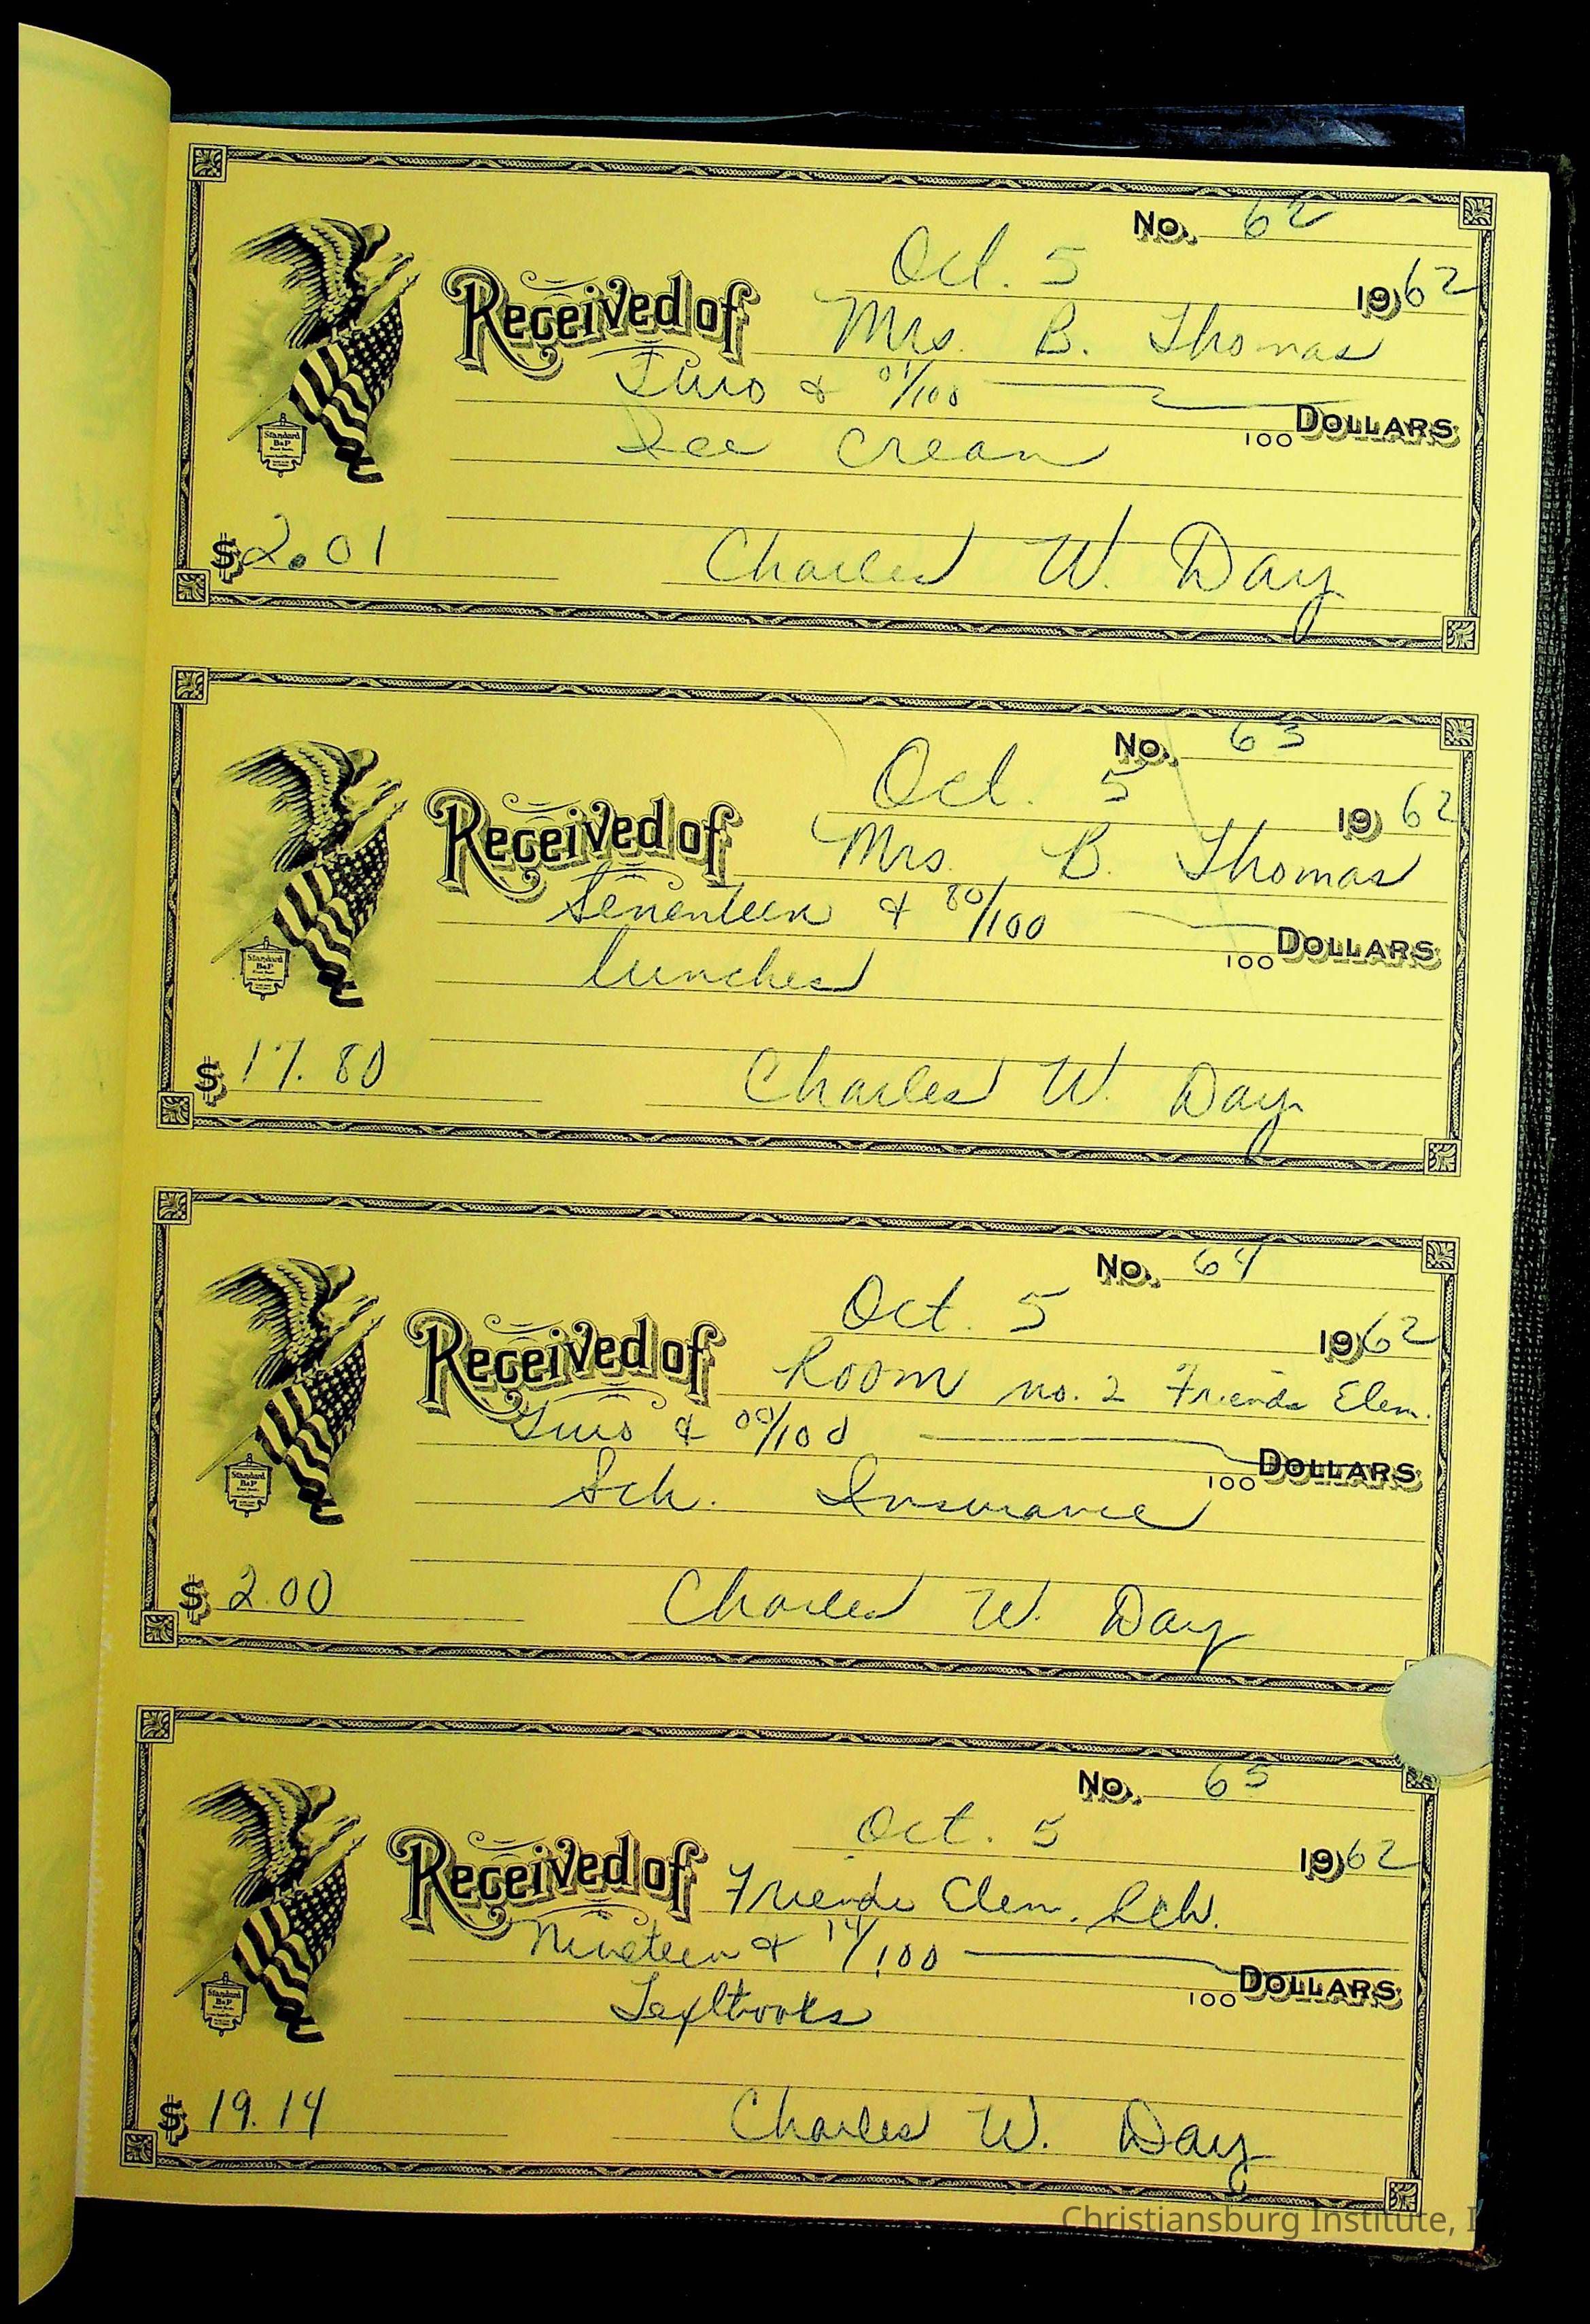 No. 62
Oct. 5 1962
Received of Mrs. B. Thomas
Two & 01/100 100 DOLLARS
Ice Cream
$2.01 Charles W. Day
Standard B&P
No. 63
Oct. 5 1962
Received of Mrs. B. Thomas
Seventeen & 80/100 100 DOLLARS
lunches
$17.80 Charles W. Day
Standard B&P
No. 64
Oct. 5 1962
Received of Room no. 2 Friends Elem.
Two & 00/100 100 DOLLARS
Sch. Insurance
$2.00 Charles W. Day
Standard B&P
No. 65
Oct. 5 1962
Received of Friends Elem. Sch.
Nineteen & 14/100 100 DOLLARS
Textbooks
$19.14 Charles W. Day
Standard B&P
Christiansburg Institute, I